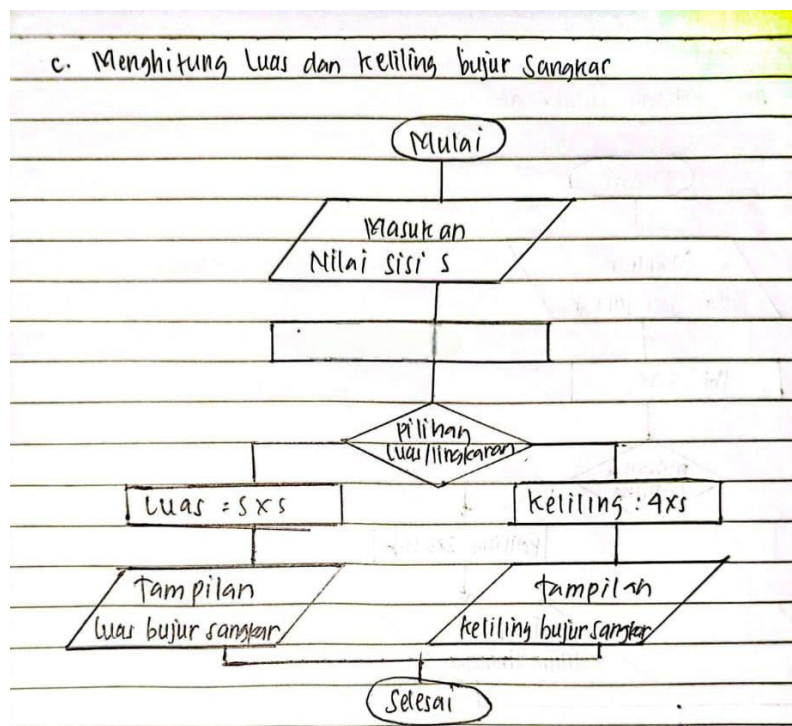 c. Menghitung Luas dan Keliling bujur sangkar
Mulai
Masukan
Nilai sisi s
Pilihan
Luas/lingkaran
Luas = s x s
Keliling : 4xs
Tampilan
Luas bujur sangkar
tampilan
keliling bujur sangkar
Selesai